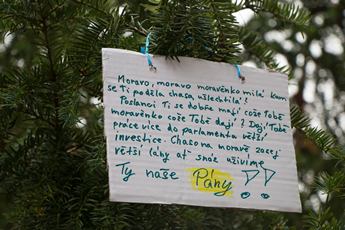 Moravo, moravo moravěnko milá kam
se Ti poděla chasa ušlechtilá?
Poslanci Ti se dobře mají cože Tobě
moravěnko cože Tobě dají? Dají Tobě
práce více do parlamentu větší
investice. Chaso na moravě zasej
větší lány ať snáz uživíme
Ty naše Pány!!